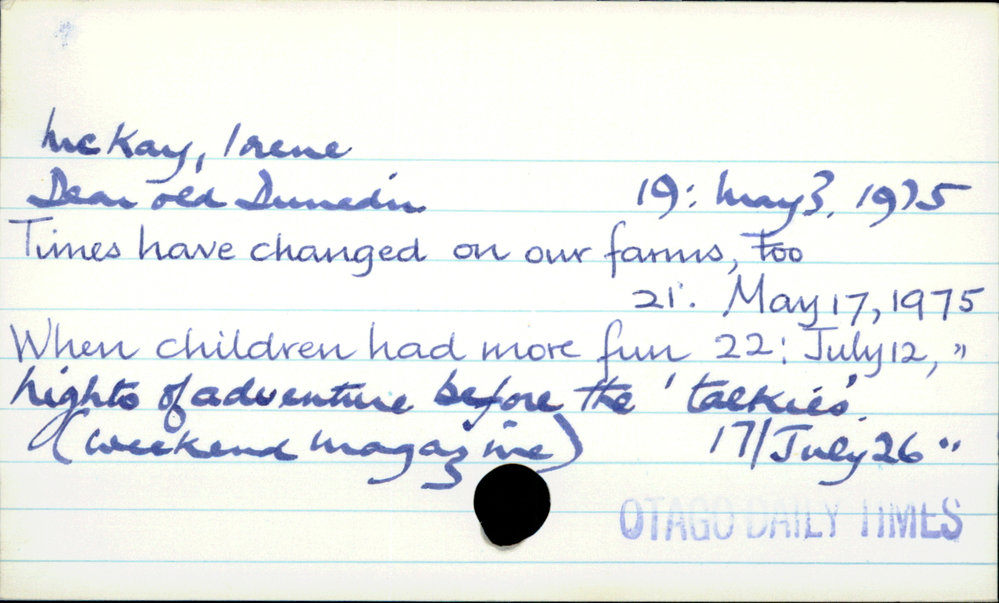 McKay, Irene
Dear old Dunedin 19: May 3, 1975
Times have changed on our farms, too
21: May 17, 1975
When children had more fun 22: July 12, "
Nights of adventure before the 'talkies'.
(weekend magazine) 17/July 26 "
OTAGO DAILY TIMES